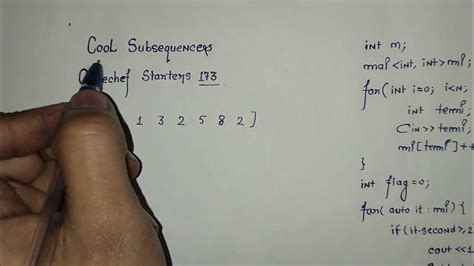 Cool Subsequences
Starters 173
1 3 2 5 8 2 ]
int m;
map<int, int> mp;
for( int i=0; i<N;
int temp;
Cin >> temp
mp[temp]++
}
int flag=0;
for( auto it : mp) {
if( it.second >, 2
cout <<1